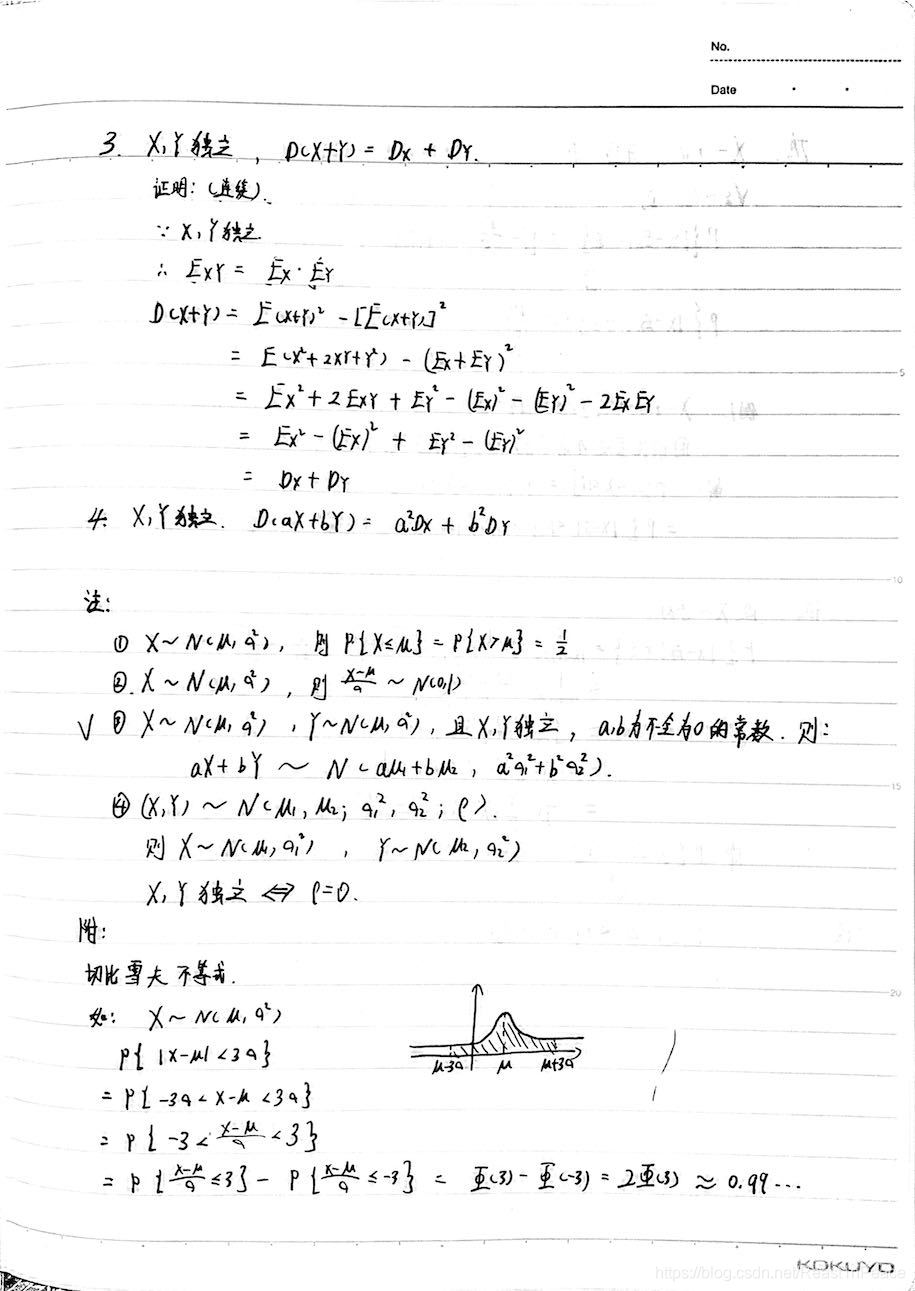 No.
Date
3. X,Y独立, D(X+Y) = DX + DY.
证明:(连续).
∵ X,Y独立
∴ EXY = EX·EY
D(X+Y) = E(X+Y)² - [E(X+Y)]²
= E(X²+2XY+Y²) - (EX+EY)²
= EX² + 2EXY + EY² - (EX)² - (EY)² - 2EXEY
= EX² - (EX)² + EY² - (EY)²
= DX + DY
4. X,Y独立. D(aX+bY) = a²DX + b²DY
注:
① X~N(μ,σ²), 则 P{X≤μ} = P{X>μ} = 1/2
②. X~N(μ,σ²), 则 (X-μ)/σ ~ N(0,1)
√ ③ X~N(μ,σ²), Y~N(μ,σ²), 且X,Y独立, a,b为不全为0的常数. 则:
aX+bY ~ N(aμ₁+bμ₂, a²σ₁²+b²σ₂²).
④ (X,Y) ~ N(μ₁,μ₂; σ₁²,σ₂²; ρ).
则 X~N(μ₁,σ₁²), Y~N(μ₂,σ₂²)
X,Y独立 ⇔ ρ=0.
附:
切比雪夫不等式.
如: X~N(μ,σ²)
μ-3σ μ μ+3σ
P{|X-μ|<3σ}
= P{-3σ<X-μ<3σ}
= P{-3<(X-μ)/σ<3}
= P{(X-μ)/σ≤3} - P{(X-μ)/σ≤-3} = Φ(3) - Φ(-3) = 2Φ(3) ≈ 0.99...
5
10
15
20
KOKUYO